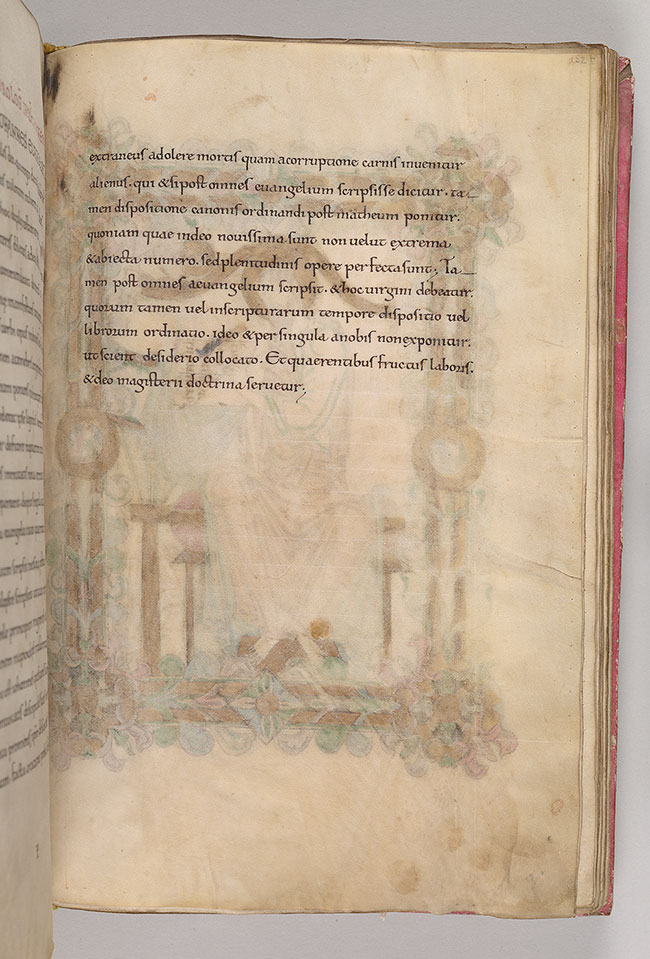 122
extraneus adolere mortis quam acorruptione carnis inuenitur
alienus. qui &sipost omnes euangelium scripsisse dicitur. ta
men dispositione canonis ordinandi post matheum ponitur.
quoniam quae indeo nouissima sunt non uelut extrema
&abiecta numero. sedplenitudinis opere perfectasunt; Ta
men post omnes aeuangelium scripsit. &hoc uirgini debeatur.
quorum tamen uel inscripturarum tempore dispositio uel
librorum ordinatio. ideo &per singula anobis nonexponitur.
ut scient desiderio collocato. Et quaerentibus fructus laboris.
&deo magisterii doctrina seruetur;